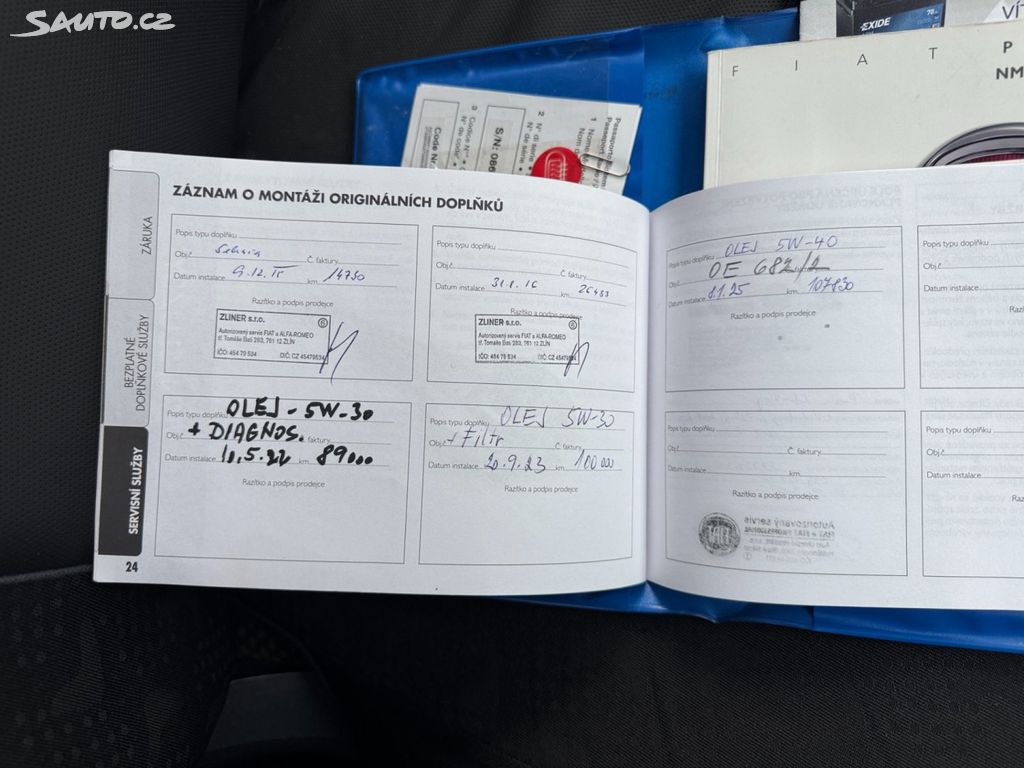 SAUTO.CZ
EXIDE
VÍT
F I A T P
NM
Passaporto
1 Nome
2 N° di serie
N° de série
S/N: 066
3 Codice N°
N° de code
Code Nr.
ZÁZNAM O MONTÁŽI ORIGINÁLNÍCH DOPLŇKŮ
ZÁRUKA
BEZPLATNÉ
DOPLŇKOVÉ SLUŽBY
SERVISNÍ SLUŽBY
24
Popis typu doplňku
Obj.č. Č. faktury
Datum instalace 9.12.15 km 14750
Razítko a podpis prodejce
ZLINER s.r.o. 6
Autorizovaný servis FIAT a ALFA-ROMEO
tř. Tomáše Bati 283, 761 12 ZLÍN
IČO: 454 79 534 DIČ: CZ 45479534
Popis typu doplňku
Obj.č. Č. faktury
Datum instalace 31.8.16 km 26453
Razítko a podpis prodejce
ZLINER s.r.o. 6
Autorizovaný servis FIAT a ALFA-ROMEO
tř. Tomáše Bati 283, 761 12 ZLÍN
IČO: 454 79 534 DIČ: CZ 45479534
Popis typu doplňku OLEJ - 5W-30
Obj.č. + DIAGNOS. faktury
Datum instalace 10.5.22 km 89000
Razítko a podpis prodejce
Popis typu doplňku OLEJ 5W-30
Obj.č. + Filtr Č. faktury
Datum instalace 20.9.23 km 100 000
Razítko a podpis prodejce
Popis typu doplňku OLEJ 5W-40
Obj.č. OE 682/2
Datum instalace 8.1.25 km 107830
Razítko a podpis prodejce
Popis typu doplňku
Obj.č. Č. faktury
Datum instalace km
Razítko a podpis prodejce
Autorizovaný servis
FIAT a FIAT PROFESSIONAL
Popis typu
Obj.č.
Datum instal
Popis typu do
Obj.č.
Datum instala